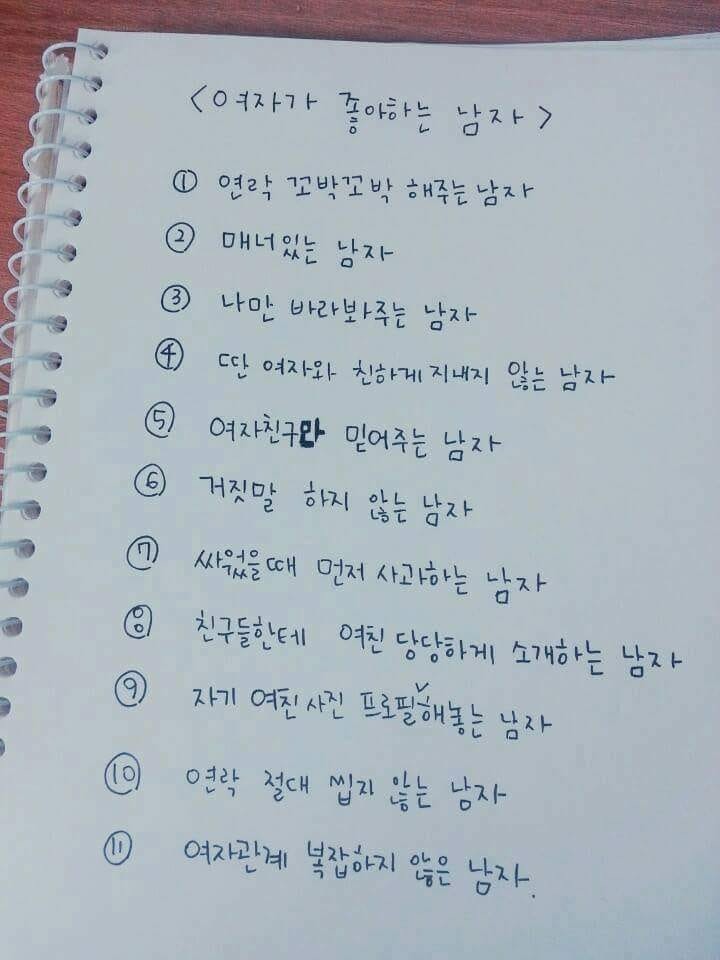 <여자가 좋아하는 남자>
① 연락 꼬박꼬박 해주는 남자
② 매너있는 남자
③ 나만 바라봐주는 남자
④ 딴 여자와 친하게 지내지 않는 남자
⑤ 여자친구만 믿어주는 남자
⑥ 거짓말 하지 않는 남자
⑦ 싸웠을때 먼저 사과하는 남자
⑧ 친구들한테 여친 당당하게 소개하는 남자
⑨ 자기 여친 사진 프로필∨해놓는 남자
⑩ 연락 절대 씹지 않는 남자
⑪ 여자관계 복잡하지 않은 남자.